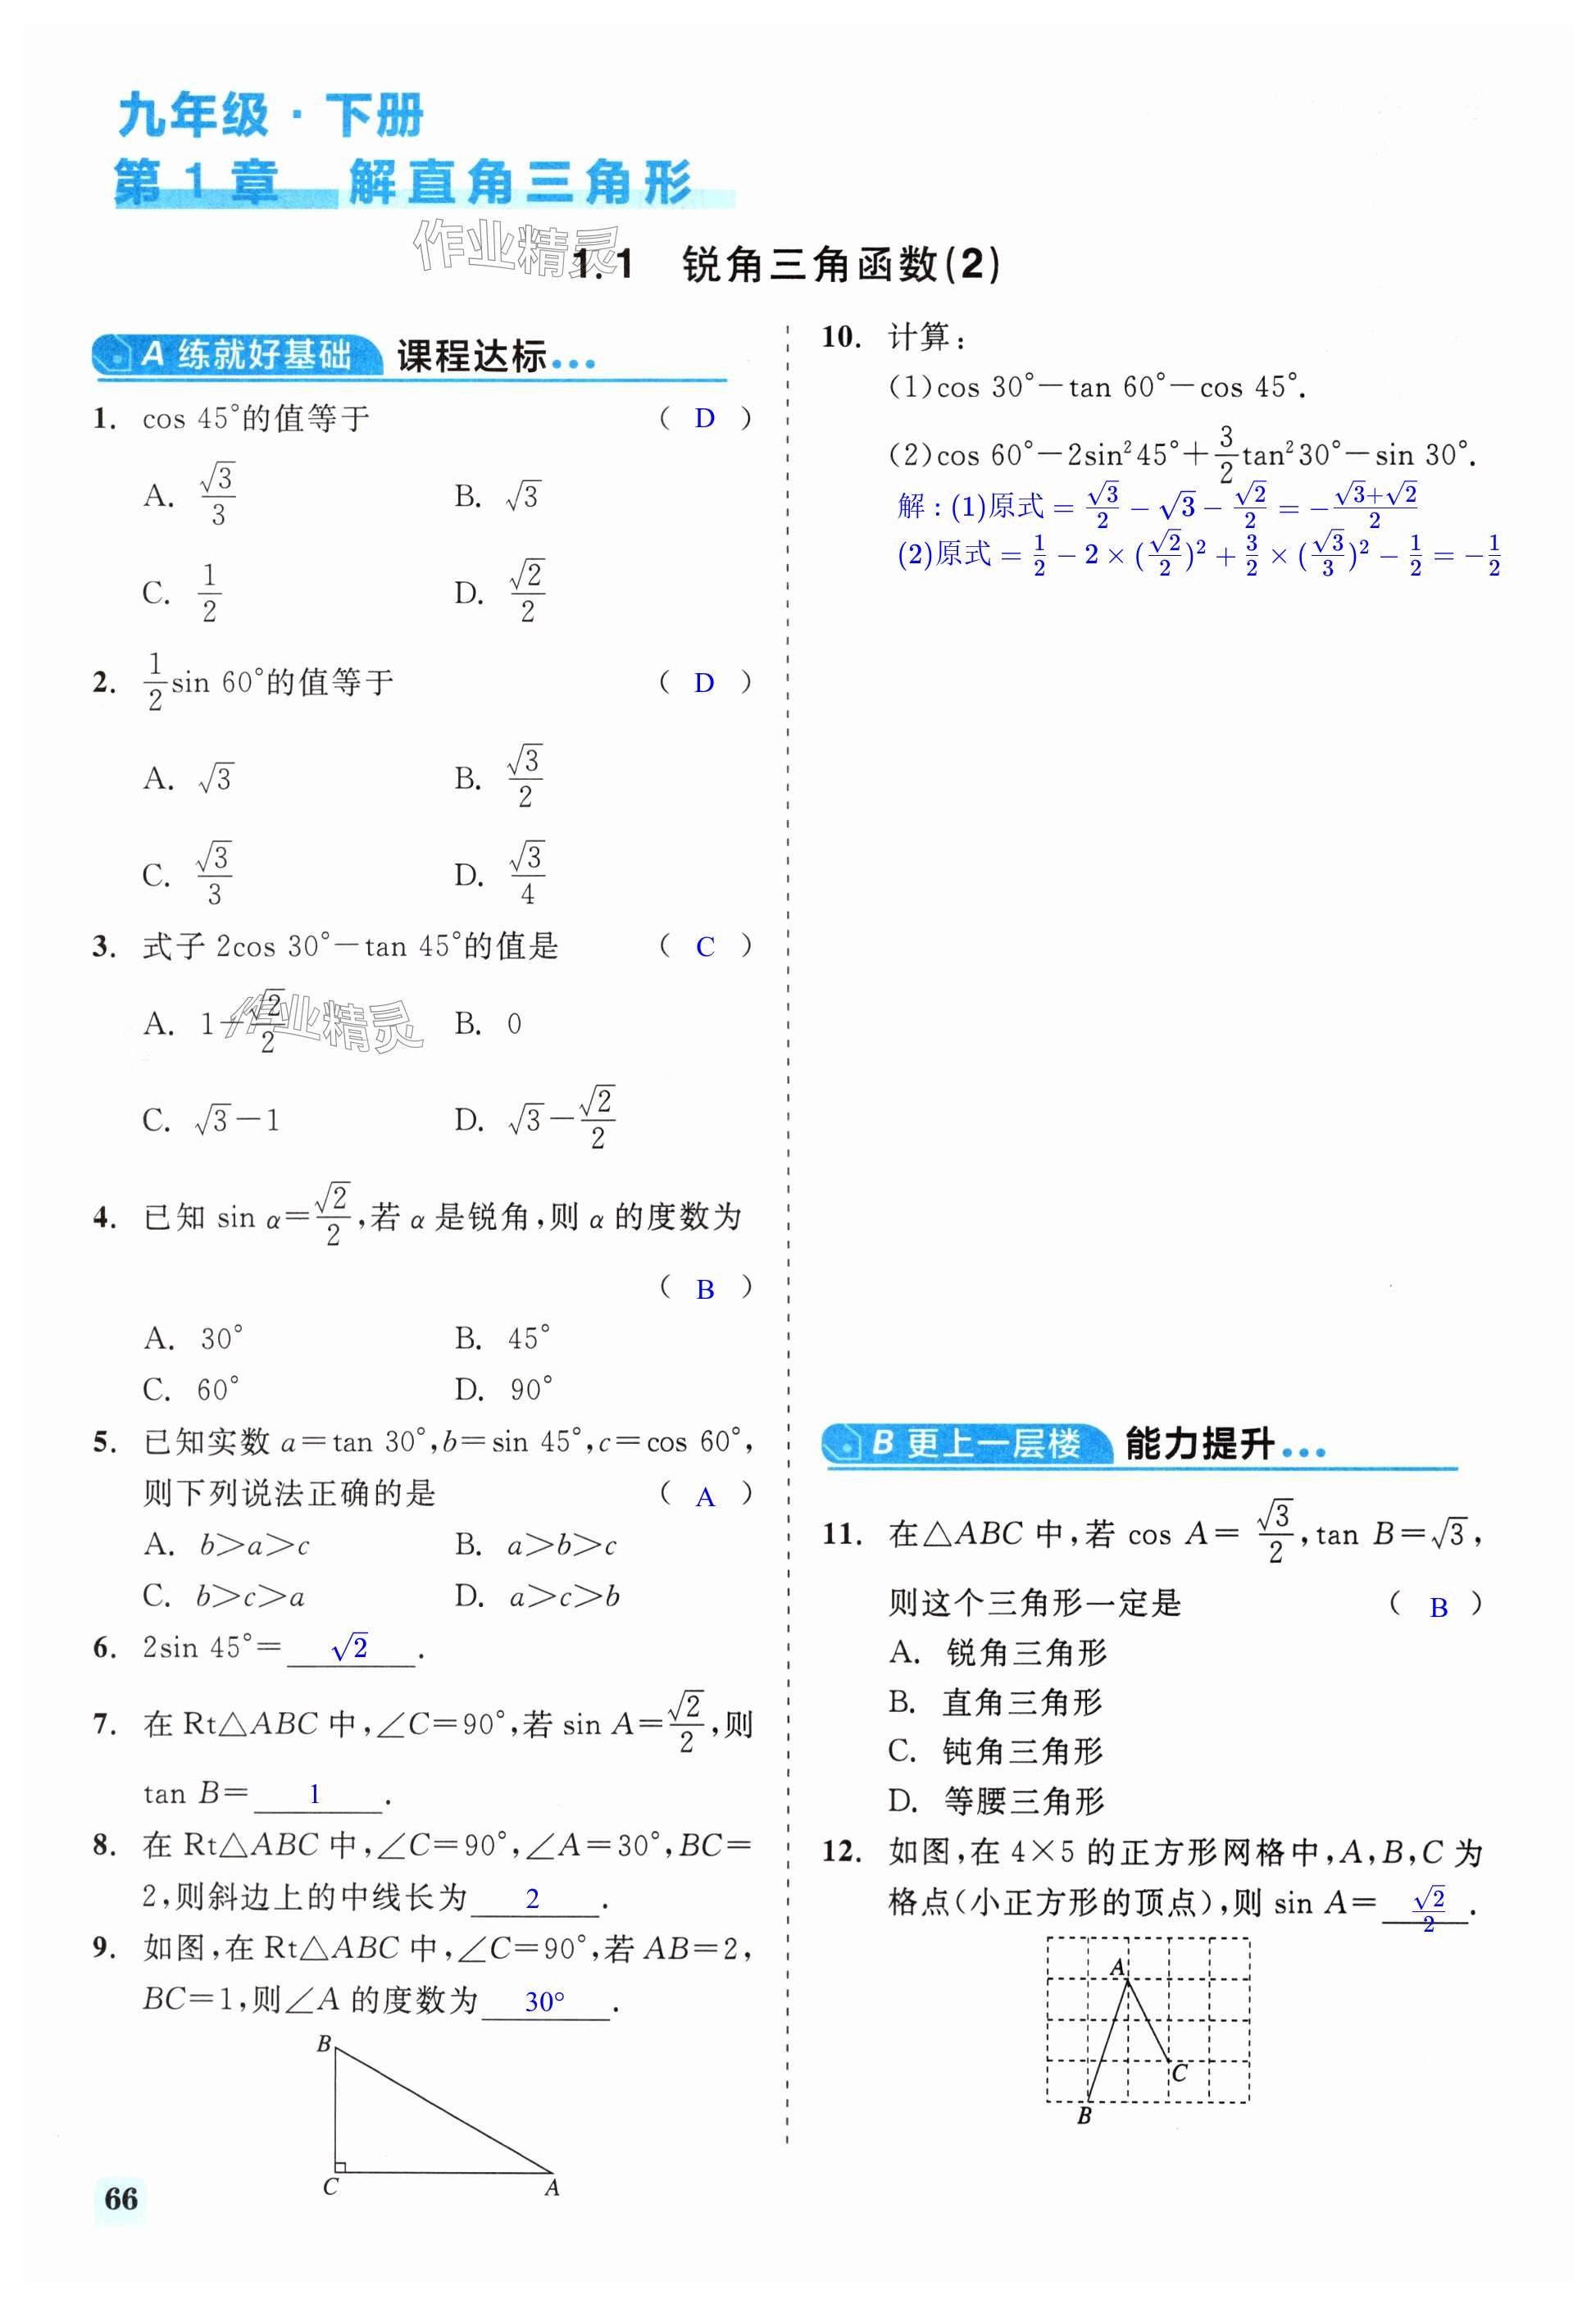 九年级·下册
第1章 解直角三角形
作业精灵
1.1 锐角三角函数(2)
A 练就好基础 课程达标...
1. cos 45°的值等于 ( D )
A. √3/3 B. √3
C. 1/2 D. √2/2
2. 1/2 sin 60°的值等于 ( D )
A. √3 B. √3/2
C. √3/3 D. √3/4
3. 式子 2cos 30°－tan 45°的值是 ( C )
A. 1－√2/2 B. 0
作业精灵
C. √3－1 D. √3－√2/2
4. 已知 sin α＝√2/2,若 α 是锐角,则 α 的度数为
( B )
A. 30° B. 45°
C. 60° D. 90°
5. 已知实数 a＝tan 30°,b＝sin 45°,c＝cos 60°,
则下列说法正确的是 ( A )
A. b＞a＞c B. a＞b＞c
C. b＞c＞a D. a＞c＞b
6. 2sin 45°＝ √2 .
7. 在 Rt△ABC 中,∠C＝90°,若 sin A＝√2/2,则
tan B＝ 1 .
8. 在 Rt△ABC 中,∠C＝90°,∠A＝30°,BC＝
2,则斜边上的中线长为 2 .
9. 如图,在 Rt△ABC 中,∠C＝90°,若 AB＝2,
BC＝1,则∠A 的度数为 30° .
B
C A
66
10. 计算:
(1)cos 30°－tan 60°－cos 45°.
(2)cos 60°－2sin²45°＋3/2 tan²30°－sin 30°.
解:(1)原式 = √3/2 − √3 − √2/2 = −(√3+√2)/2
(2)原式 = 1/2 − 2 × (√2/2)² + 3/2 × (√3/3)² − 1/2 = −1/2
B 更上一层楼 能力提升...
11. 在△ABC 中,若 cos A＝ √3/2,tan B＝√3,
则这个三角形一定是 ( B )
A. 锐角三角形
B. 直角三角形
C. 钝角三角形
D. 等腰三角形
12. 如图,在 4×5 的正方形网格中,A,B,C 为
格点(小正方形的顶点),则 sin A＝ √2/2 .
A
C
B